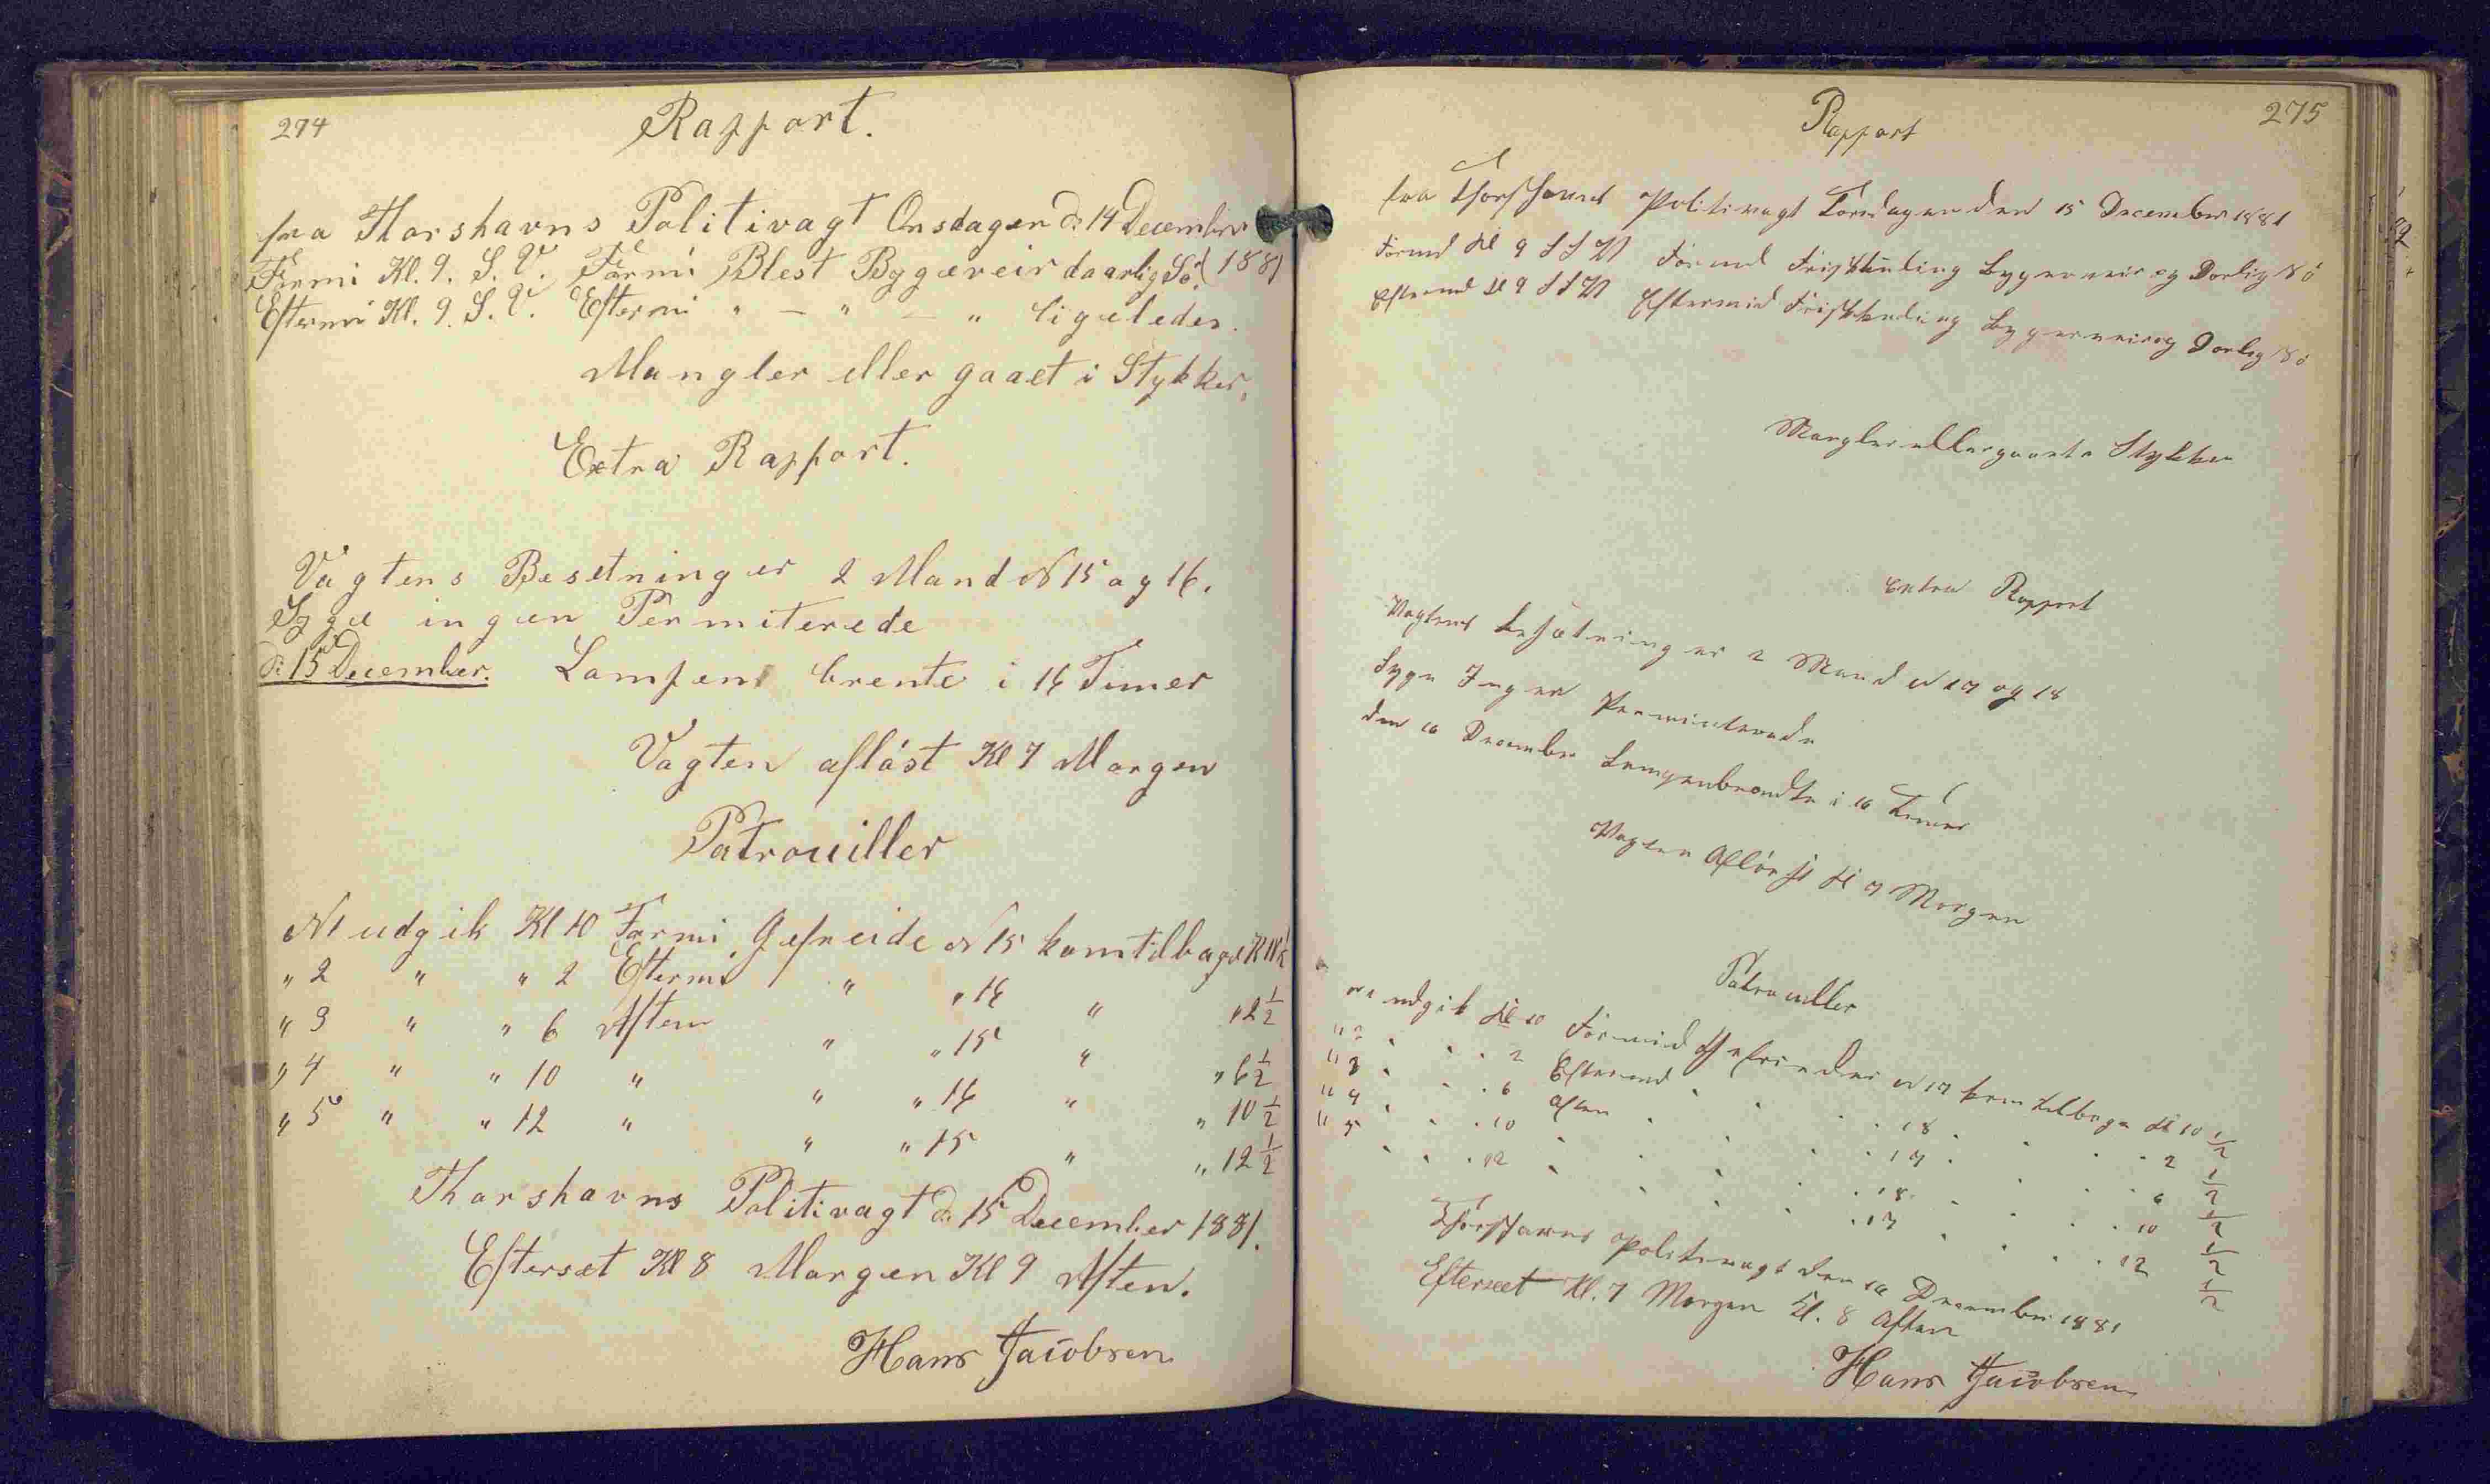 274
Rapport.
fra Thorshavns Politivagt Onsdagen d: 14 December
Formi Kl. 9. S. V. Formi Blest Bygeveir daarlig Sö. (1881
Eftermi Kl. 9. S. V. Eftermi " — " — " ligeledes.
Mangler eller gaaet i Stykker.
Extra Rapport.
Vagtens Besetning er 2 Mand N 15 og 16.
Syge ingen Permiterede
d: 15 December. Lampen brente i 16 Timer
Vagten aflöst Kl 7 Morgen
Patrouiller
N 1 udgik Kl 10 Formi Gefreide N 15 kom tilbage Kl
" 2 " " 2 Eftermi " " 16 " " 2 1/2
" 3 " " 6 Aften " " 15 " " 6 1/2
" 4 " " 10 " " " 16 " " 10 1/2
" 5 " " 12 " " " 15 " " 12 1/2
Thorshavns Politivagt d: 15 December 1881.
Efterset Kl 8 Morgen Kl 9 Aften.
Hans Jacobsen
275
Rapport
fra Thorshavns Politivagt Torsdagen den 15 December 1881
Formd Kl 9 S S W Formd Friskkuling Bygerveir og Dorlig Sö
Eftermd Kl 9 S S W Eftermid Friskkuling Bygerveir og Dorlig Sö
Mangler eller gaaet i Stykker
Extra Rapport
Vagtens besætning er 2 Mand N 17 og 18
Syge Ingen Permiterede
den 16 December Lampen brendte i 16 Timer
Vagten Aflöst Kl 7 Morgen
Patrouller
N 1 udgik Kl 10 Formid Gefrieder N 17 kom tilbage Kl 10 1/2
" 2 " " 2 Eftermd " " 18 " " 2 1/2
" 3 " " 6 Aften " " 17 " " 6 1/2
" 4 " " 10 " " " 18 " " 10 1/2
" 5 " " 12 " " " 17 " " 12 1/2
Thorshavns Politivagt den 16 December 1881
Efterseet Kl. 7 Morgen Kl. 8 Aften
Hans Jacobsen